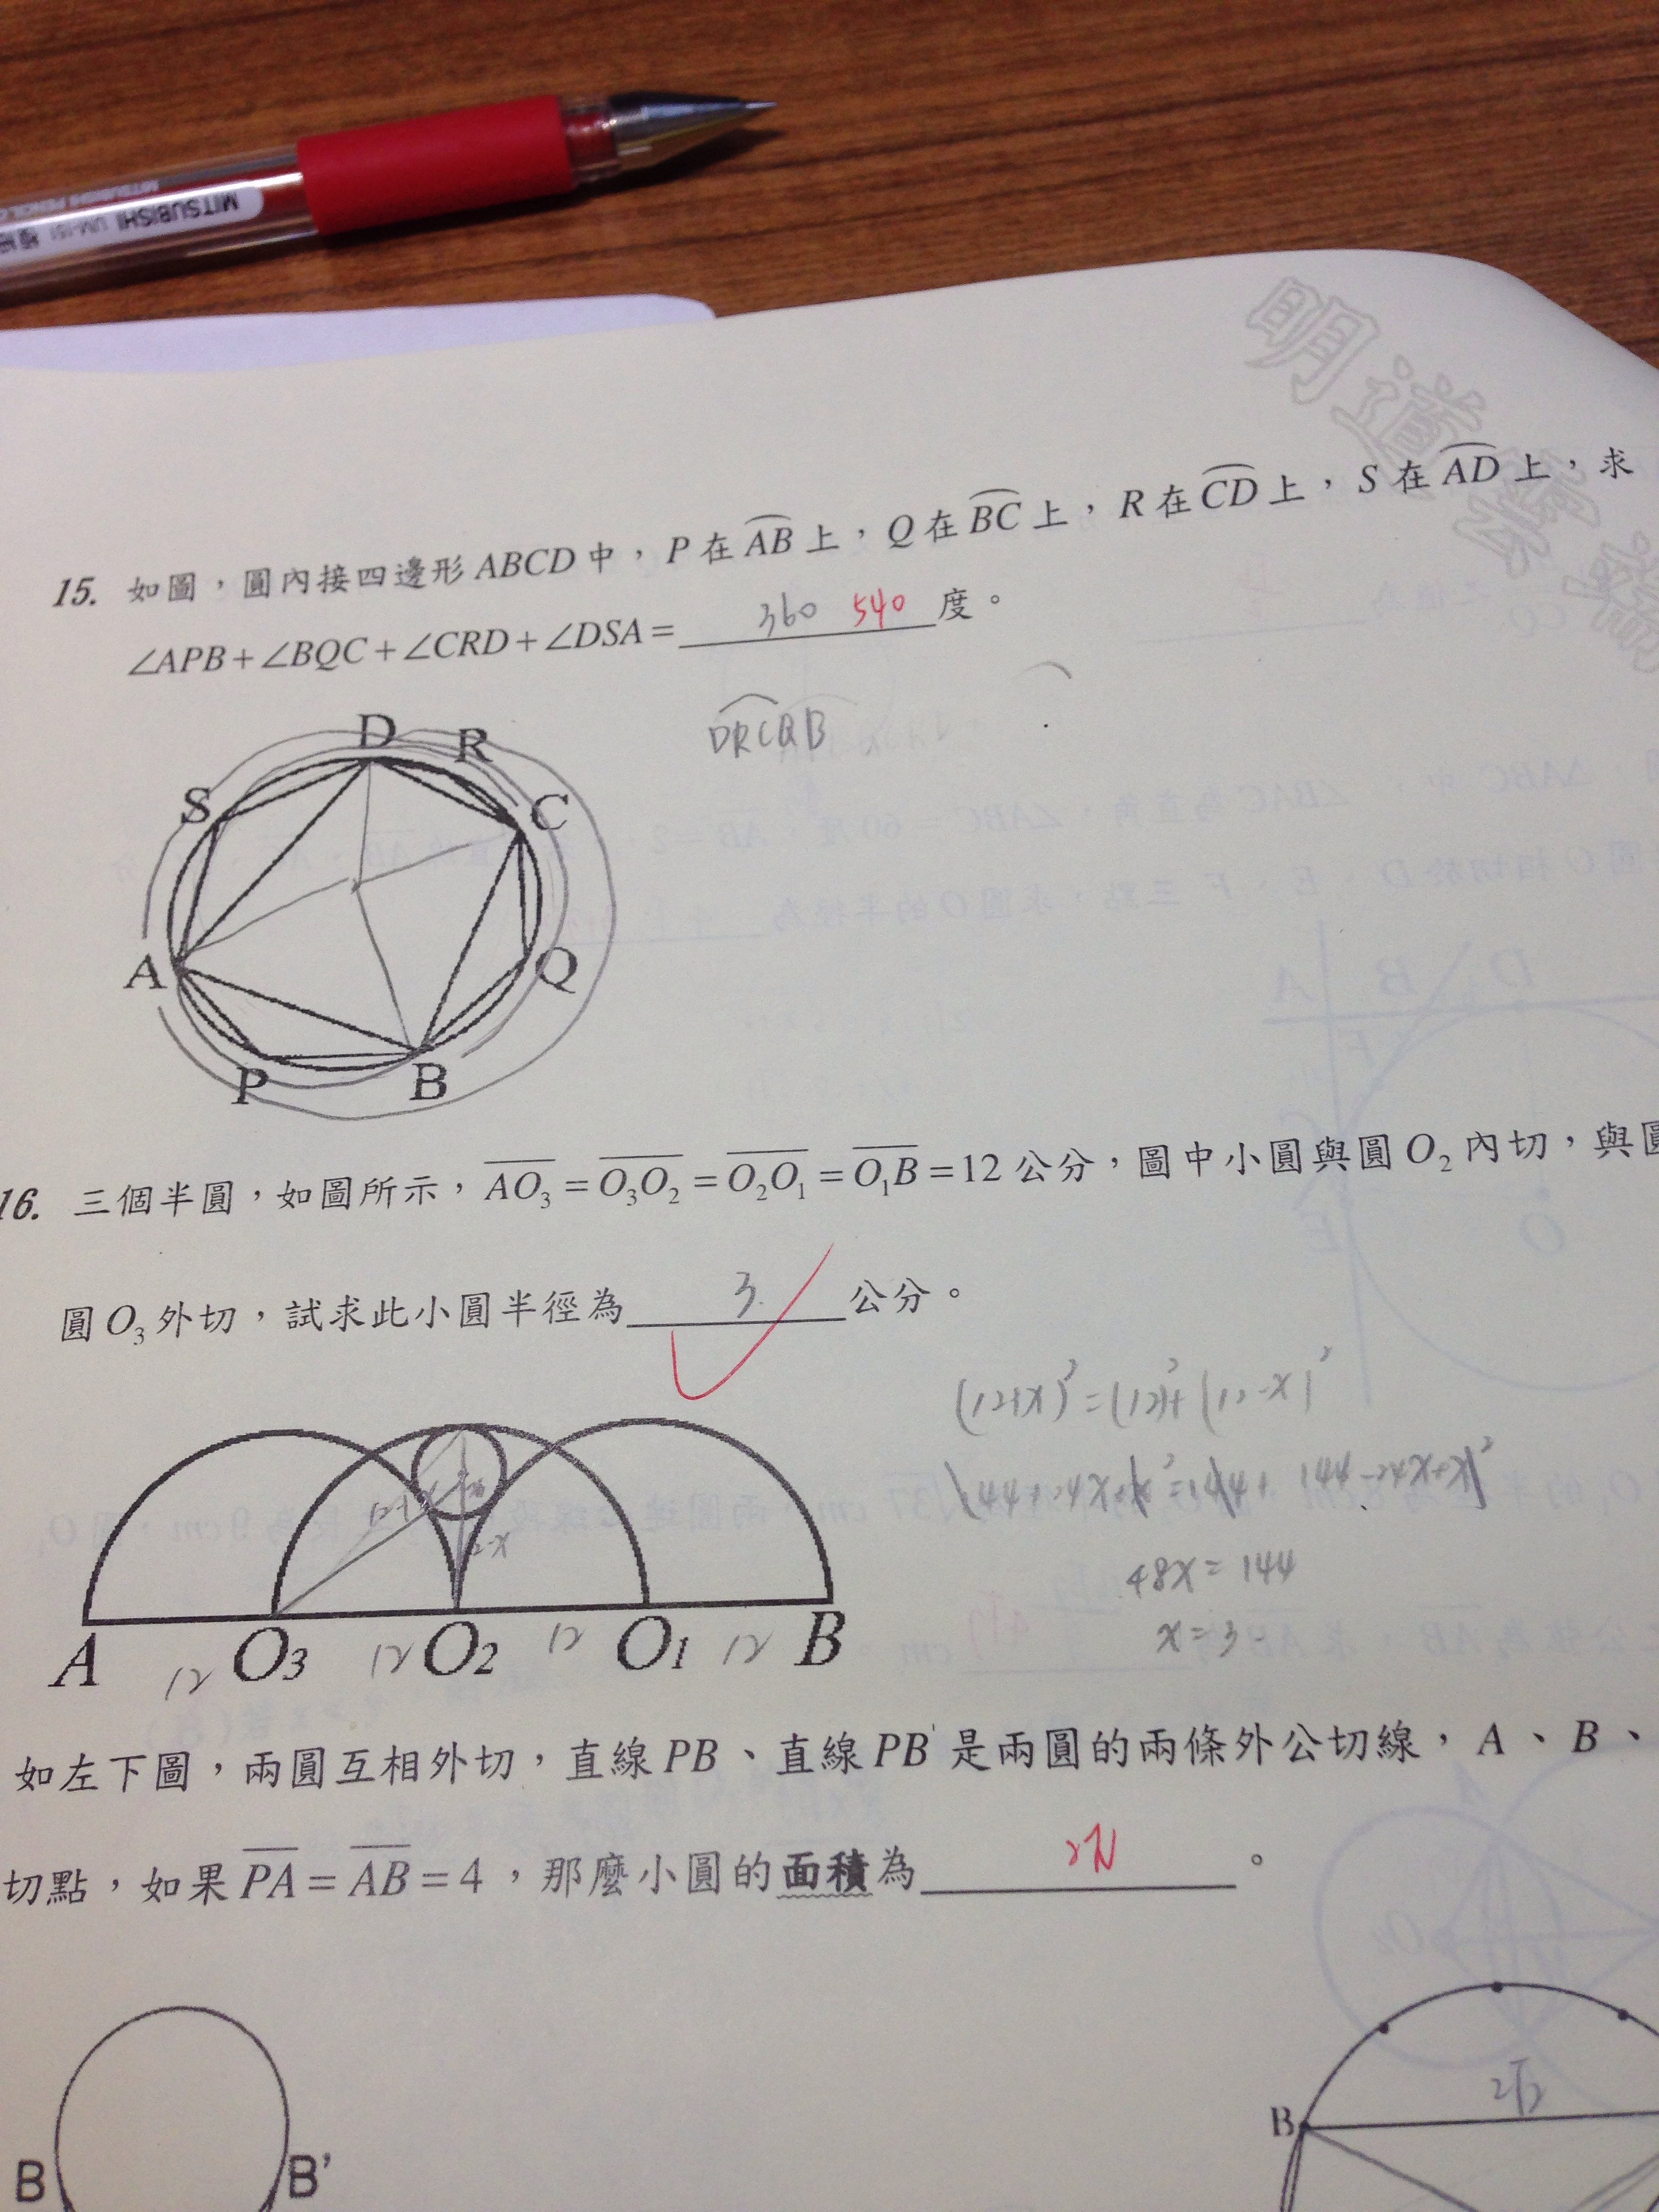 MITSUBISHI UM-151
MITSUBISHI PENCIL
明道
15. 如圖，圓內接四邊形 ABCD 中，P 在 AB 上，Q 在 BC 上，R 在 CD 上，S 在 AD 上，求
∠APB+∠BQC+∠CRD+∠DSA= 360 540 度。
DRCQB
D
R
S
C
A
Q
P
B
16. 三個半圓，如圖所示，AO₃ = O₃O₂ = O₂O₁ = O₁B = 12 公分，圖中小圓與圓 O₂ 內切，與圓
圓 O₃ 外切，試求此小圓半徑為 3 公分。
(12+x)² = (12)²+(12-x)²
144+24x+x² = 144+ 144-24x+x²
48x = 144
x = 3
12+x
12-x
A O₃ O₂ O₁ B
12 12 12 12
如左下圖，兩圓互相外切，直線 PB、直線 PB' 是兩圓的兩條外公切線，A、B、
切點，如果 PA = AB = 4，那麼小圓的面積為 2π 。
2√2
B
B B'